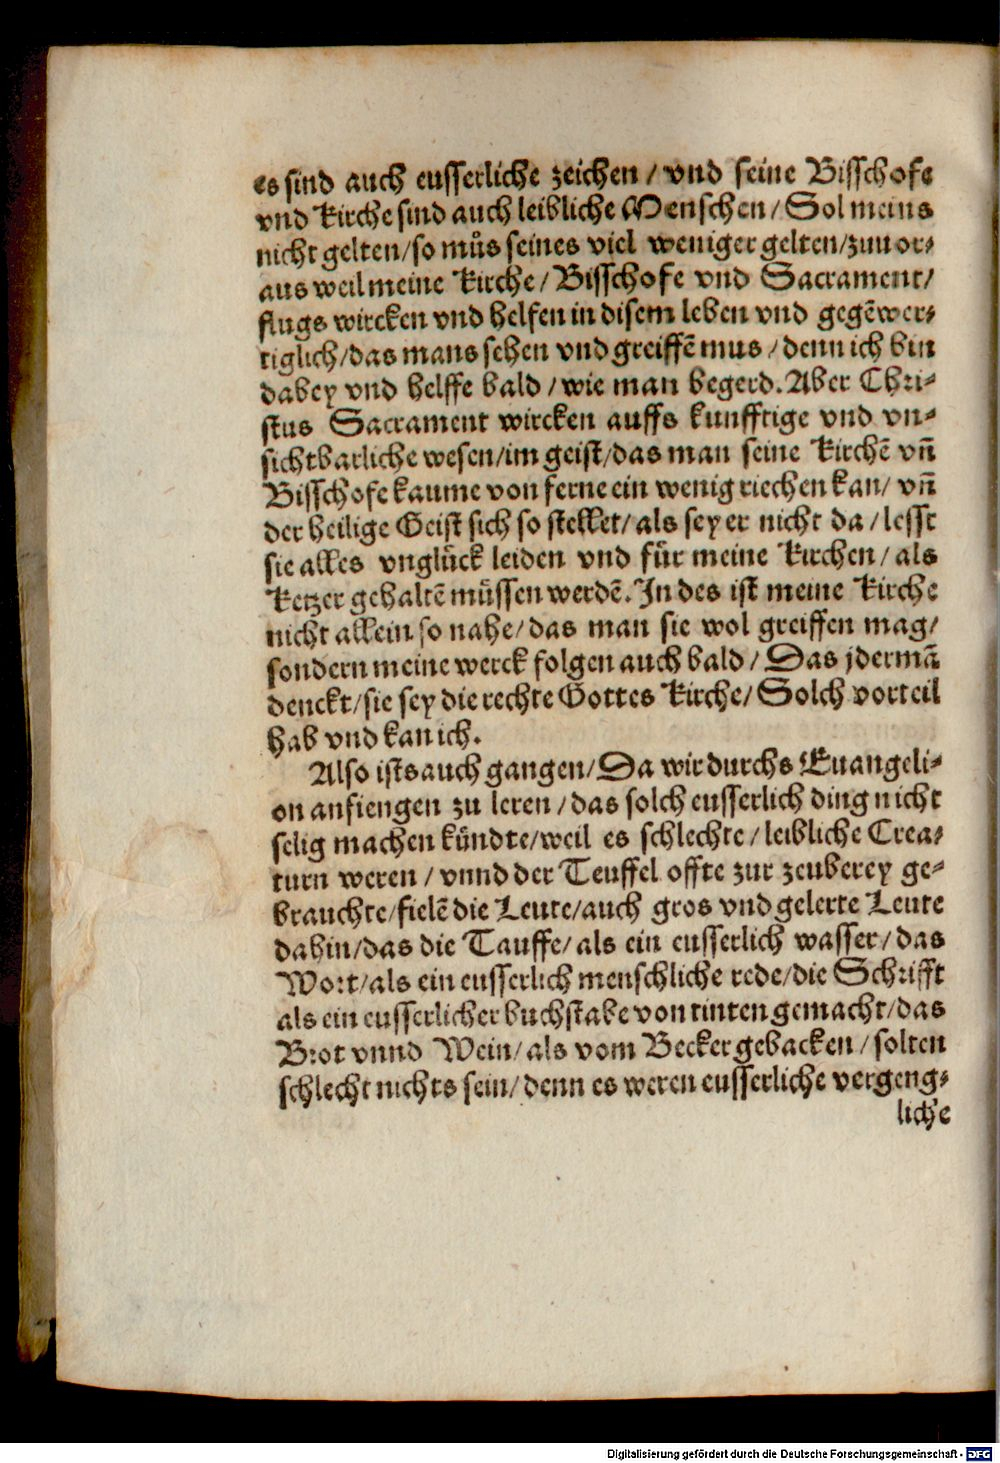 es sind auch eusserliche zeichen / vnd seine Bisschofe
vnd Kirche sind auch leibliche Menschen / Sol meins
nicht gelten / so mus seines viel weniger gelten / zuuor⸗
aus weil meine Kirche / Bisschofe vnd Sacrament /
flugs wircken vnd helfen in disem leben vnd gegēwer⸗
tiglich / das mans sehen vnd greiffē mus / denn ich bin
dabey vnd helffe bald / wie man begerd. Aber Chri⸗
stus Sacrament wircken auffs kunfftige vnd vn⸗
sichtbarliche wesen / im geist / das man seine Kirchē vñ
Bisschofe kaume von ferne ein wenig riechen kan / vñ
der heilige Geist sich so stellet / als sey er nicht da / lesst
sie alles vnglück leiden vnd für meine Kirchen / als
Ketzer gehaltē müssen werdē. In des ist meine Kirche
nicht allein so nahe / das man sie wol greiffen mag /
sondern meine werck folgen auch bald / Das jdermā
denckt / sie sey die rechte Gottes Kirche / Solch vorteil
hab vnd kan ich.
Also ists auch gangen / Da wir durchs Euangeli⸗
on anfiengen zu leren / das solch eusserlich ding nicht
selig machen kündte / weil es schlechte / leibliche Crea⸗
turn weren / vnnd der Teuffel offte zur zeuberey ge⸗
brauchte / fielē die Leute / auch gros vnd gelerte Leute
dahin / das die Tauffe / als ein eusserlich wasser / das
Wort / als ein eusserlich menschliche rede / die Schrifft
als ein eusserlicher buchstabe von tinten gemacht / das
Brot vnnd Wein / als vom Becker gebacken / solten
schlecht nichts sein / denn es weren eusserliche vergeng⸗
liche
Digitalisierung gefördert durch die Deutsche Forschungsgemeinschaft - DFG